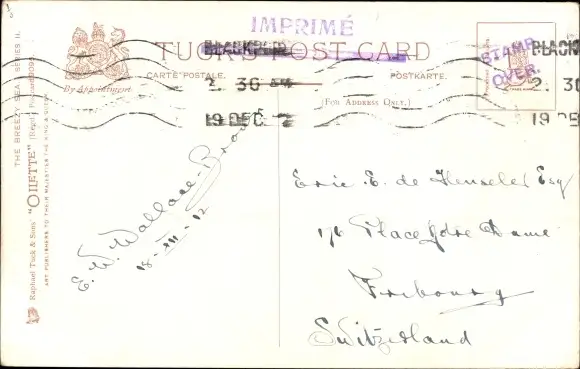 IMPRIMÉ
TUCK'S POST CARD
CARTE POSTALE. POSTKARTE.
By Appointment
(FOR ADDRESS ONLY.)
STAMP
OVER.
2. 30
19 DEC
BLACK
2. 30
19 DEC
THE BREEZY SEA. SERIES II.
Raphael Tuck & Sons' "OILETTE" (Regd.) Postcard
ART PUBLISHERS TO THEIR MAJESTIES THE KING & QUEEN
E. W. Wallace-Brown
18-XII-12
Eric E. de Henseler Esq
176 Place Notre Dame
Fribourg
Switzerland